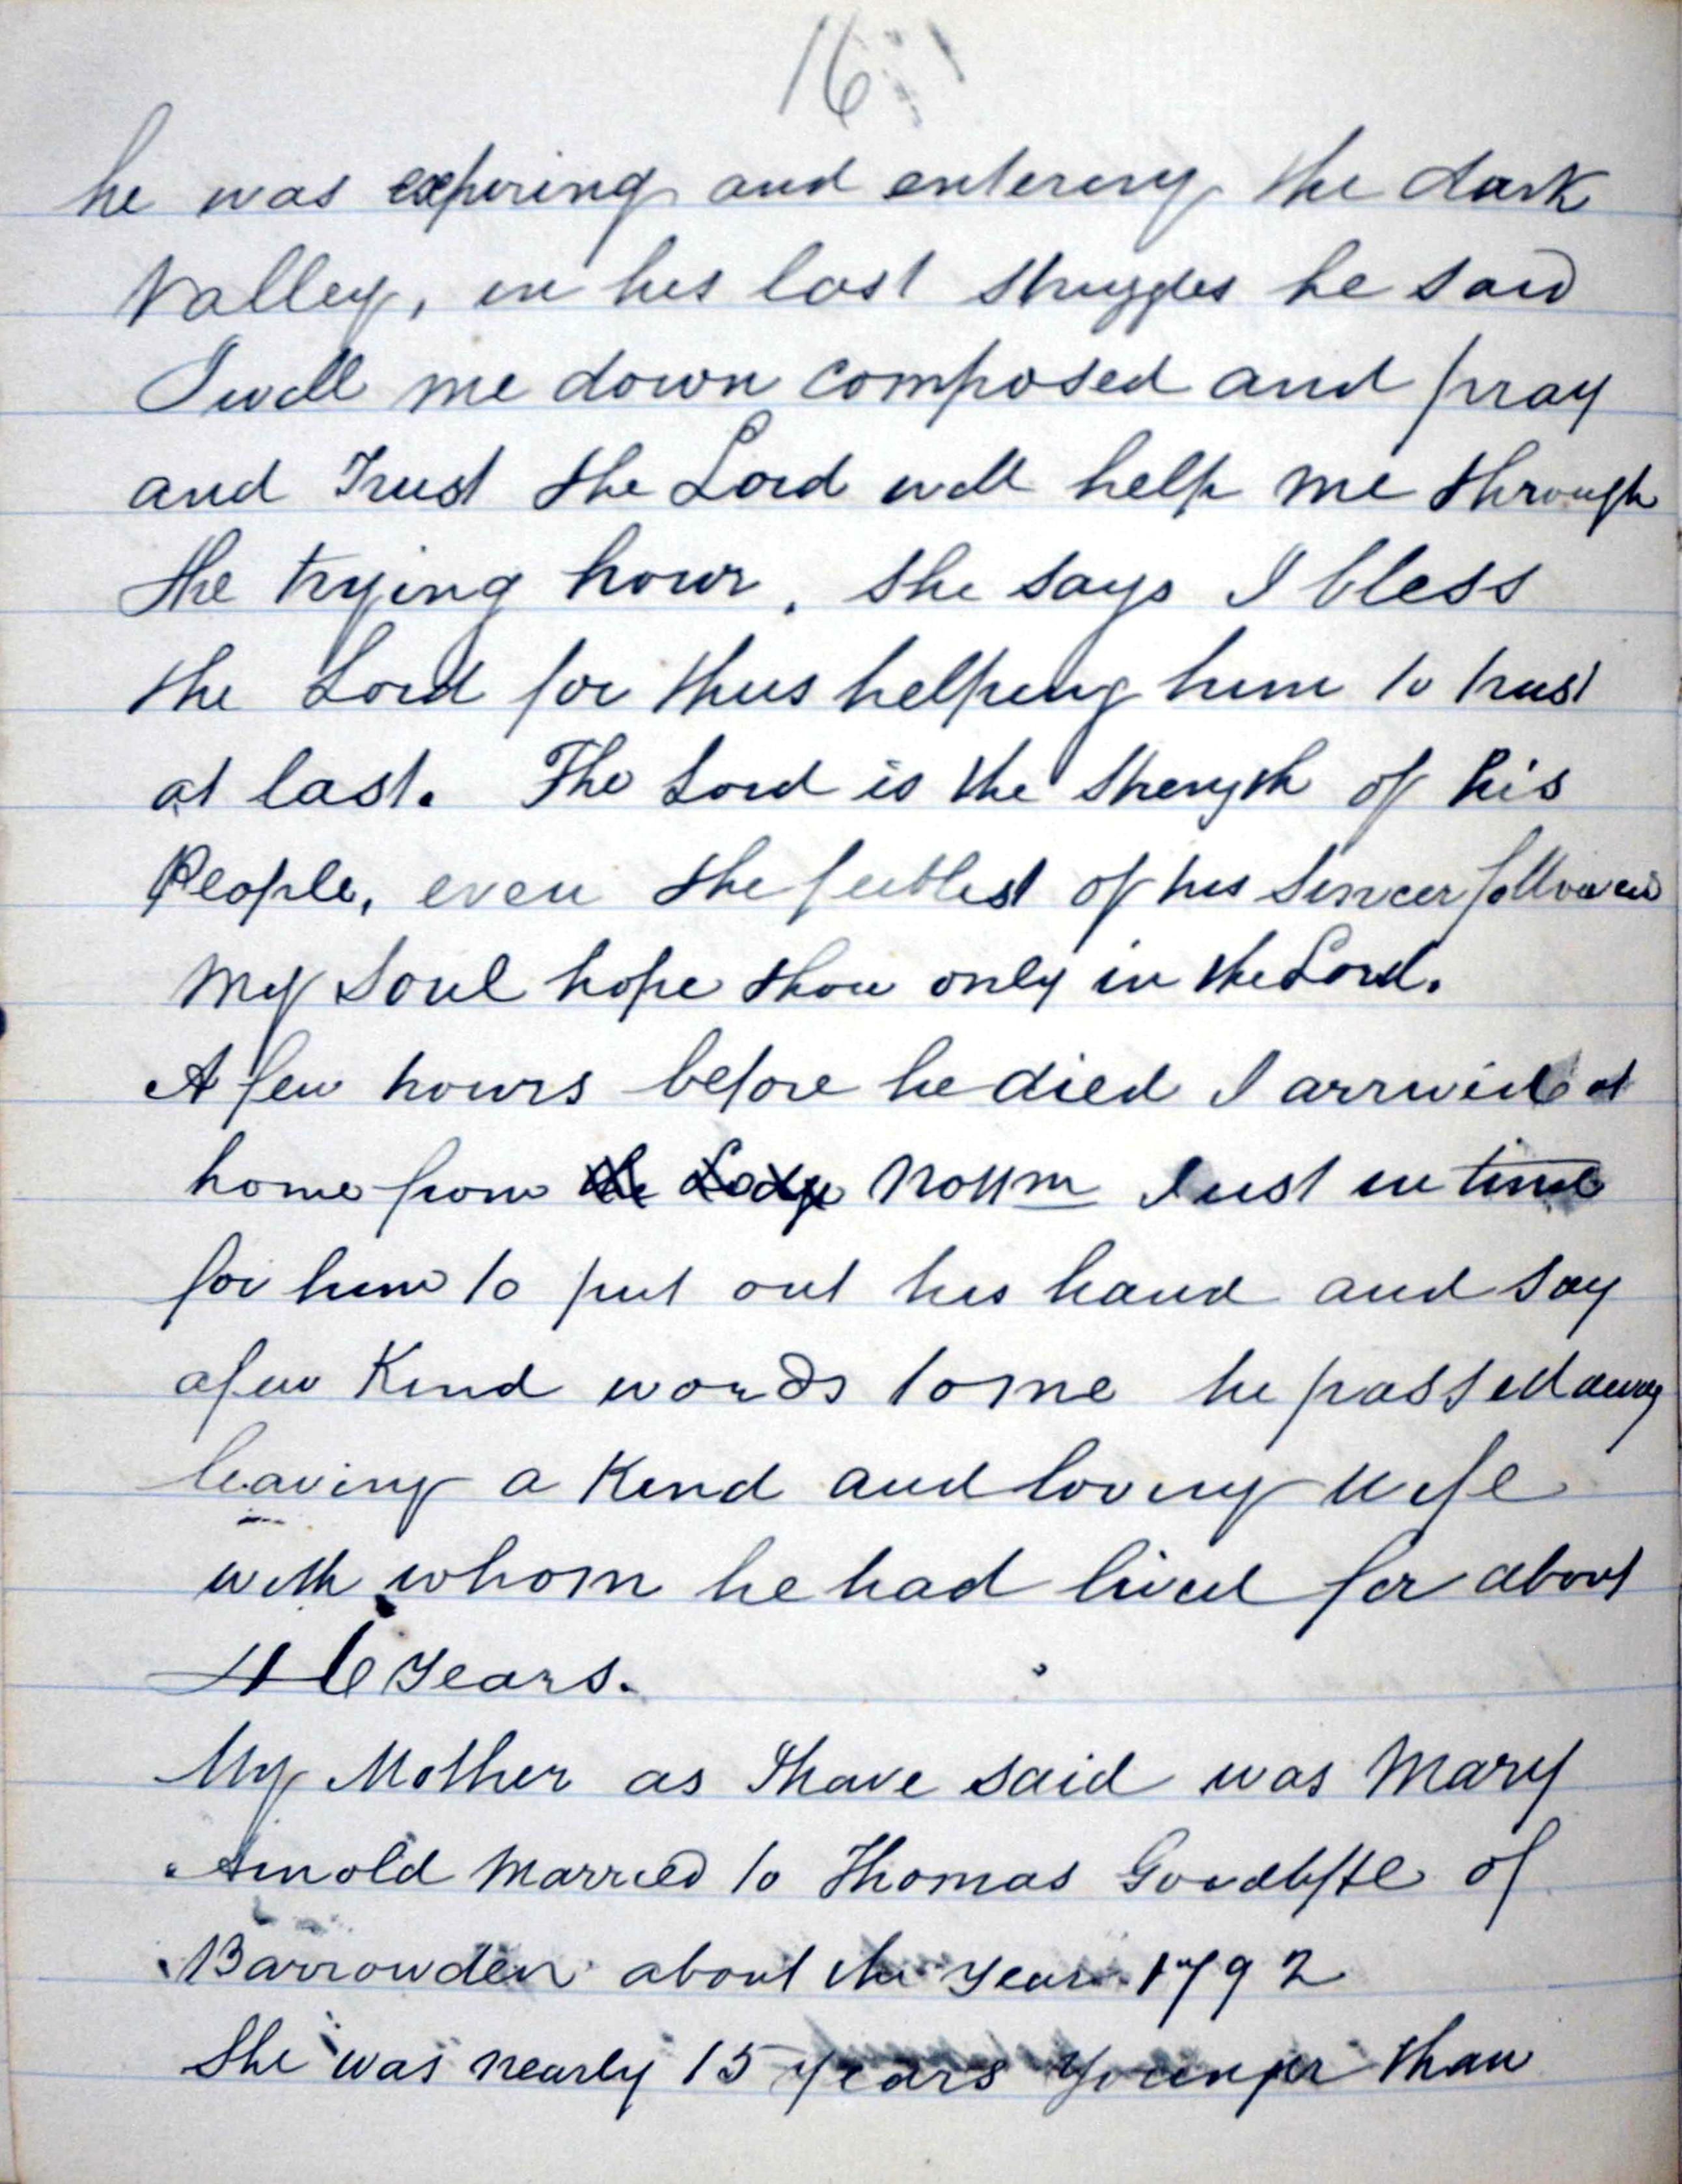 16
he was expiring and entering the dark
Valley, in his last struggles he said
I will me down composed and pray
and Trust the Lord will help me through
the trying hour. she says I bless
the Lord for thus helping him to trust
at last. The Lord is the strength of his
People, even the feeblest of his Sincer followers
My Soul hope thou only in the Lord.
A few hours before he died I arrived at
home from the Lodge Nottm Just in time
for him to put out his hand and say
a few Kind words to me he passed away
leaving a Kind and loving Wife
with whom he had lived for about
46 years.
My Mother as I have said was Mary
Arnold Married to Thomas Goodliffe of
Barrowden about the year 1792
She was nearly 15 years younger than